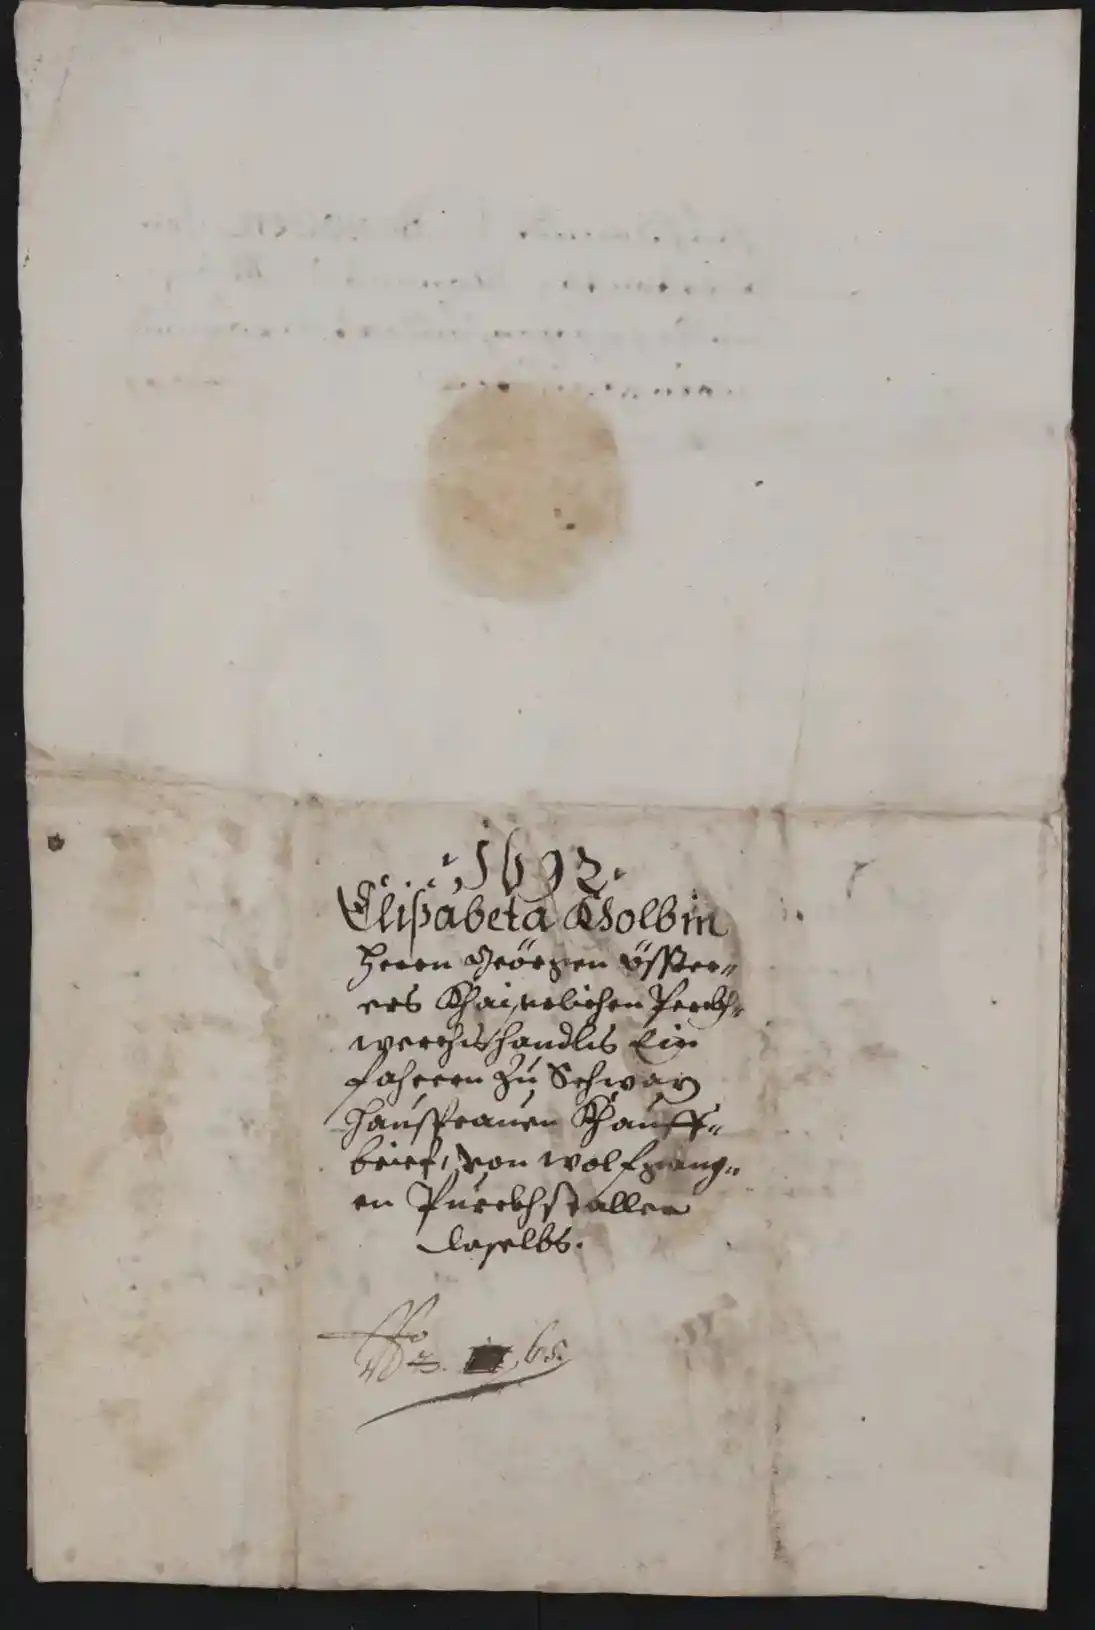 1692.
Elisabeta Kholbin
Herrn Geörgen össter-
ers Khaiserlichen Perckh-
werchshandls Ein
fahrern zu Schwaz
Haussfrauen Khauff-
brief, von Wolfgang-
en Purckhstaller
daselbs.
No. 65.